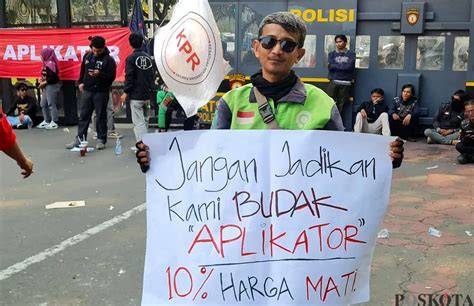 APLIKATOR
KPR
POLISI
Jangan Jadikan
Kami BUDAK
"APLIKATOR"
10% HARGA MATI.
POSKOTA